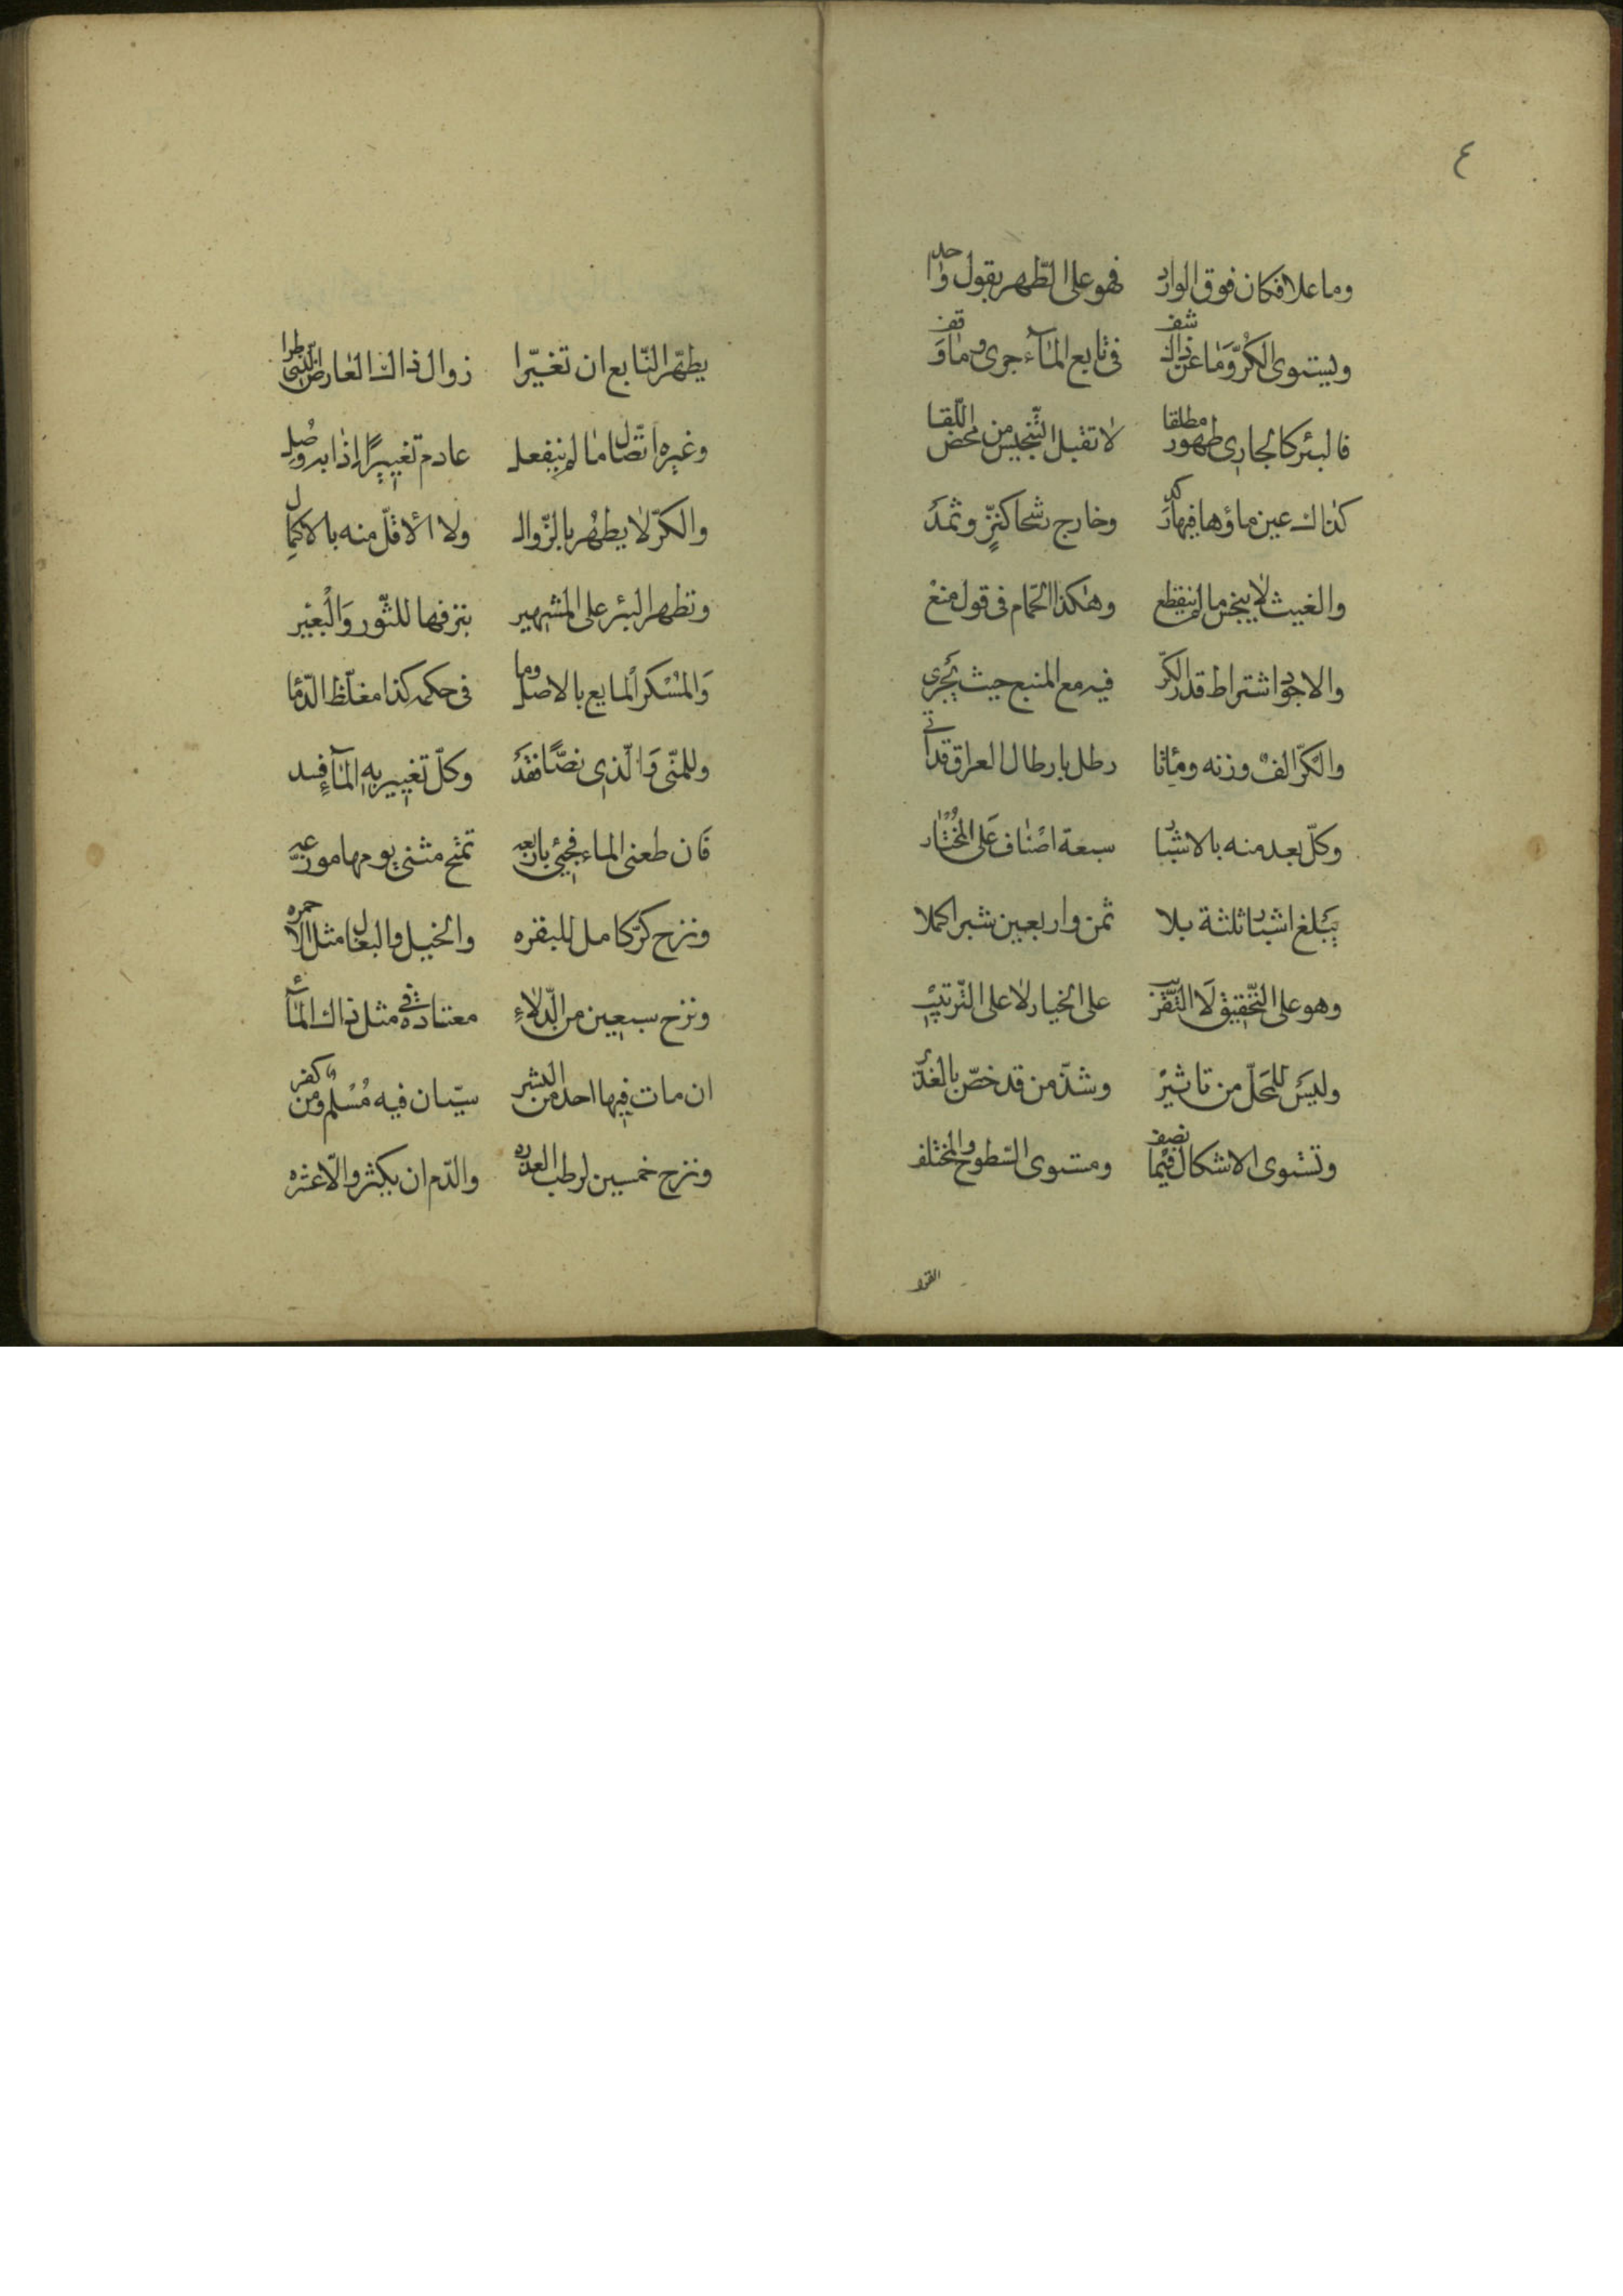 ٤
وما علا فكان فوق الوارد فهو على الطهر بقول واحد
ويستوى الكرّ وما عن ذاك شف في تابع الماء جرى وما وقف
فالبئر كالجارى طهور مطلقا لا تقبل التنجيس من محض اللّقا
كذاك عين ماؤها فيها ركد وخارج رشحا كنزّ وثمد
والغيث لا ينجس ما لم ينقطع وهكذا الحمّام في قول منع
والاجود اشتراط قدر الكرّ فيه مع المنبع حيث يجرى
والكرّ الف وزنه ومأتا رطل بارطال العراق قد أتى
وكلّ بعد منه بالاشبار سبعة اصناف على المختار
يبلغ اشبارا ثلثة بلا ثمن واربعين شبرا كملا
وهو على التّحقيق لا التّقريب على الخيار لا على التّرتيب
وليس للمحلّ من تاثير وشذّ من قد خصّ بالغدير
وتستوى الاشكال فيما نصف ومستوى السّطوح والمختلف
يطهّر النّابع ان تغيّرا زوال ذاك العارض الّذى طرا
وغيره اتّصال ما لم ينفعل عادم تغيير اذا به وصل
والكرّ لا يطهر بالزّوال ولا الاقلّ منه بالاكمال
وتطهر البئر على المشهير بنزفها للثّور والبعير
والمسكر المايع بالاصل وما في حكمه كذا مغلّظ الدّما
وللمنّى والّذى نصّا فقد وكلّ تغيير به الماء فسد
فان طغى الماء فجئ باربعه تمتح مثنى يومها موزعه
ونزح كرّ كامل للبقره والخيل والبغال مثل الاحمره
ونزح سبعين من الدّلاء معتادة في مثل ذاك الماء
ان مات فيها احد من البشر سيّان فيه مسلم ومن كفر
ونزح خمسين لرطب العذره والدّم ان يكثر والّا عشره